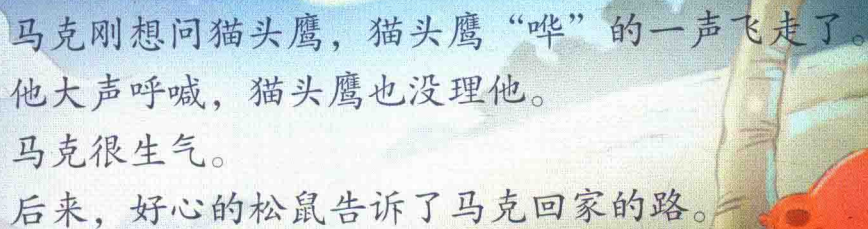 马克刚想问猫头鹰，猫头鹰“哗”的一声飞走了。
他大声呼喊，猫头鹰也没理他。
马克很生气。
后来，好心的松鼠告诉了马克回家的路。